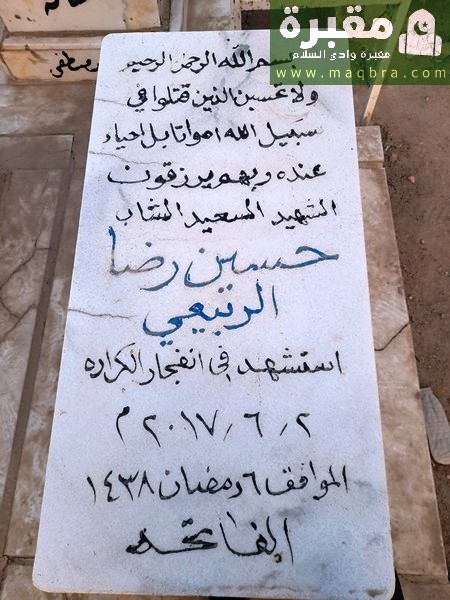 مقبرة
مقبرة وادي السلام
www.maqbra.com
بسم الله الرحمن الرحيم
ولا تحسبن الذين قتلوا في
سبيل الله امواتا بل احياء
عند ربهم يرزقون
الشهيد السعيد الشاب
حسين رضا
الربيعي
استشهد في انفجار الكراده
٢ / ٦ / ٢٠١٧ م
الموافق ٦ رمضان ١٤٣٨
الفاتحه